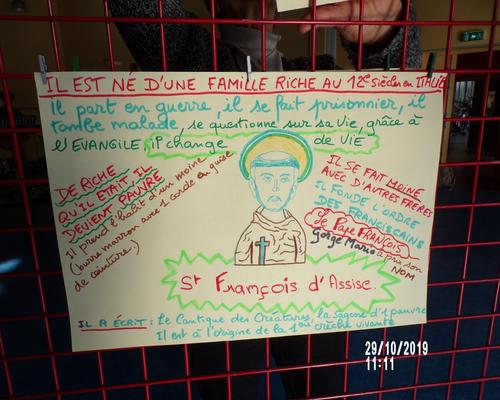 IL EST NÉ D'UNE FAMILLE RICHE AU 12e siècle en ITALIE
Il part en guerre, il se fait prisonnier, il
tombe malade, se questionne sur sa vie, grâce à
l'EVANGILE, iP change de ViE
DE RICHE
QU'IL ÉTAIT, IL
DEVIENT PAUVRE
Il prend l'habit d'un moine
(burre marron avec 1 corde en guise
de ceinture.)
IL SE FAIT MOINE
AVEC D'AUTRES FRÈRES
IL FONDE L'ORDRE
DES FRANCISCAINS
Le Pape FRANÇOIS
Gorge Mario a pris son
NOM
St François d'Assise.
IL A ÉCRIT : Le Cantique des Créatures, la sagesse d'1 pauvre
Il est à l'origine de la 1ère crèche vivante
29/10/2019
11:11